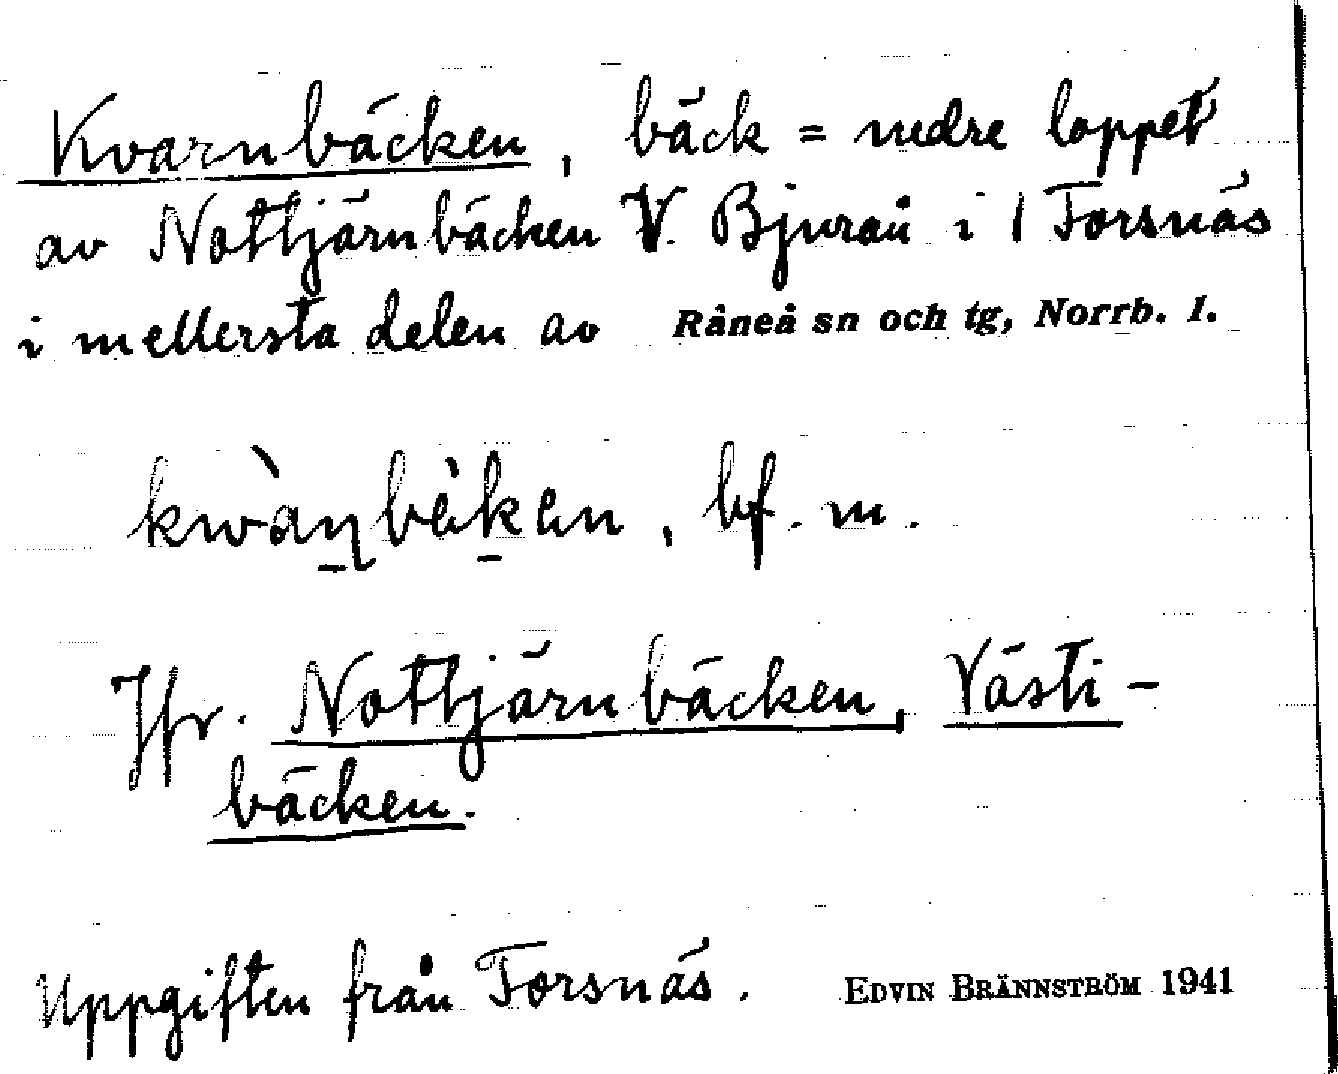 Kvarnbäcken, bäck = nedre loppet
av Nottjärnbäcken V. Bjuraå i 1 Forsnäs
i mellersta delen av Råneå sn och tg, Norrb. l.
kwàṉbèḵen, bf. m.
Jfr. Nottjärnbäcken, Västi-
bäcken.
Uppgiften från Forsnäs. EDVIN BRÄNNSTRÖM 1941